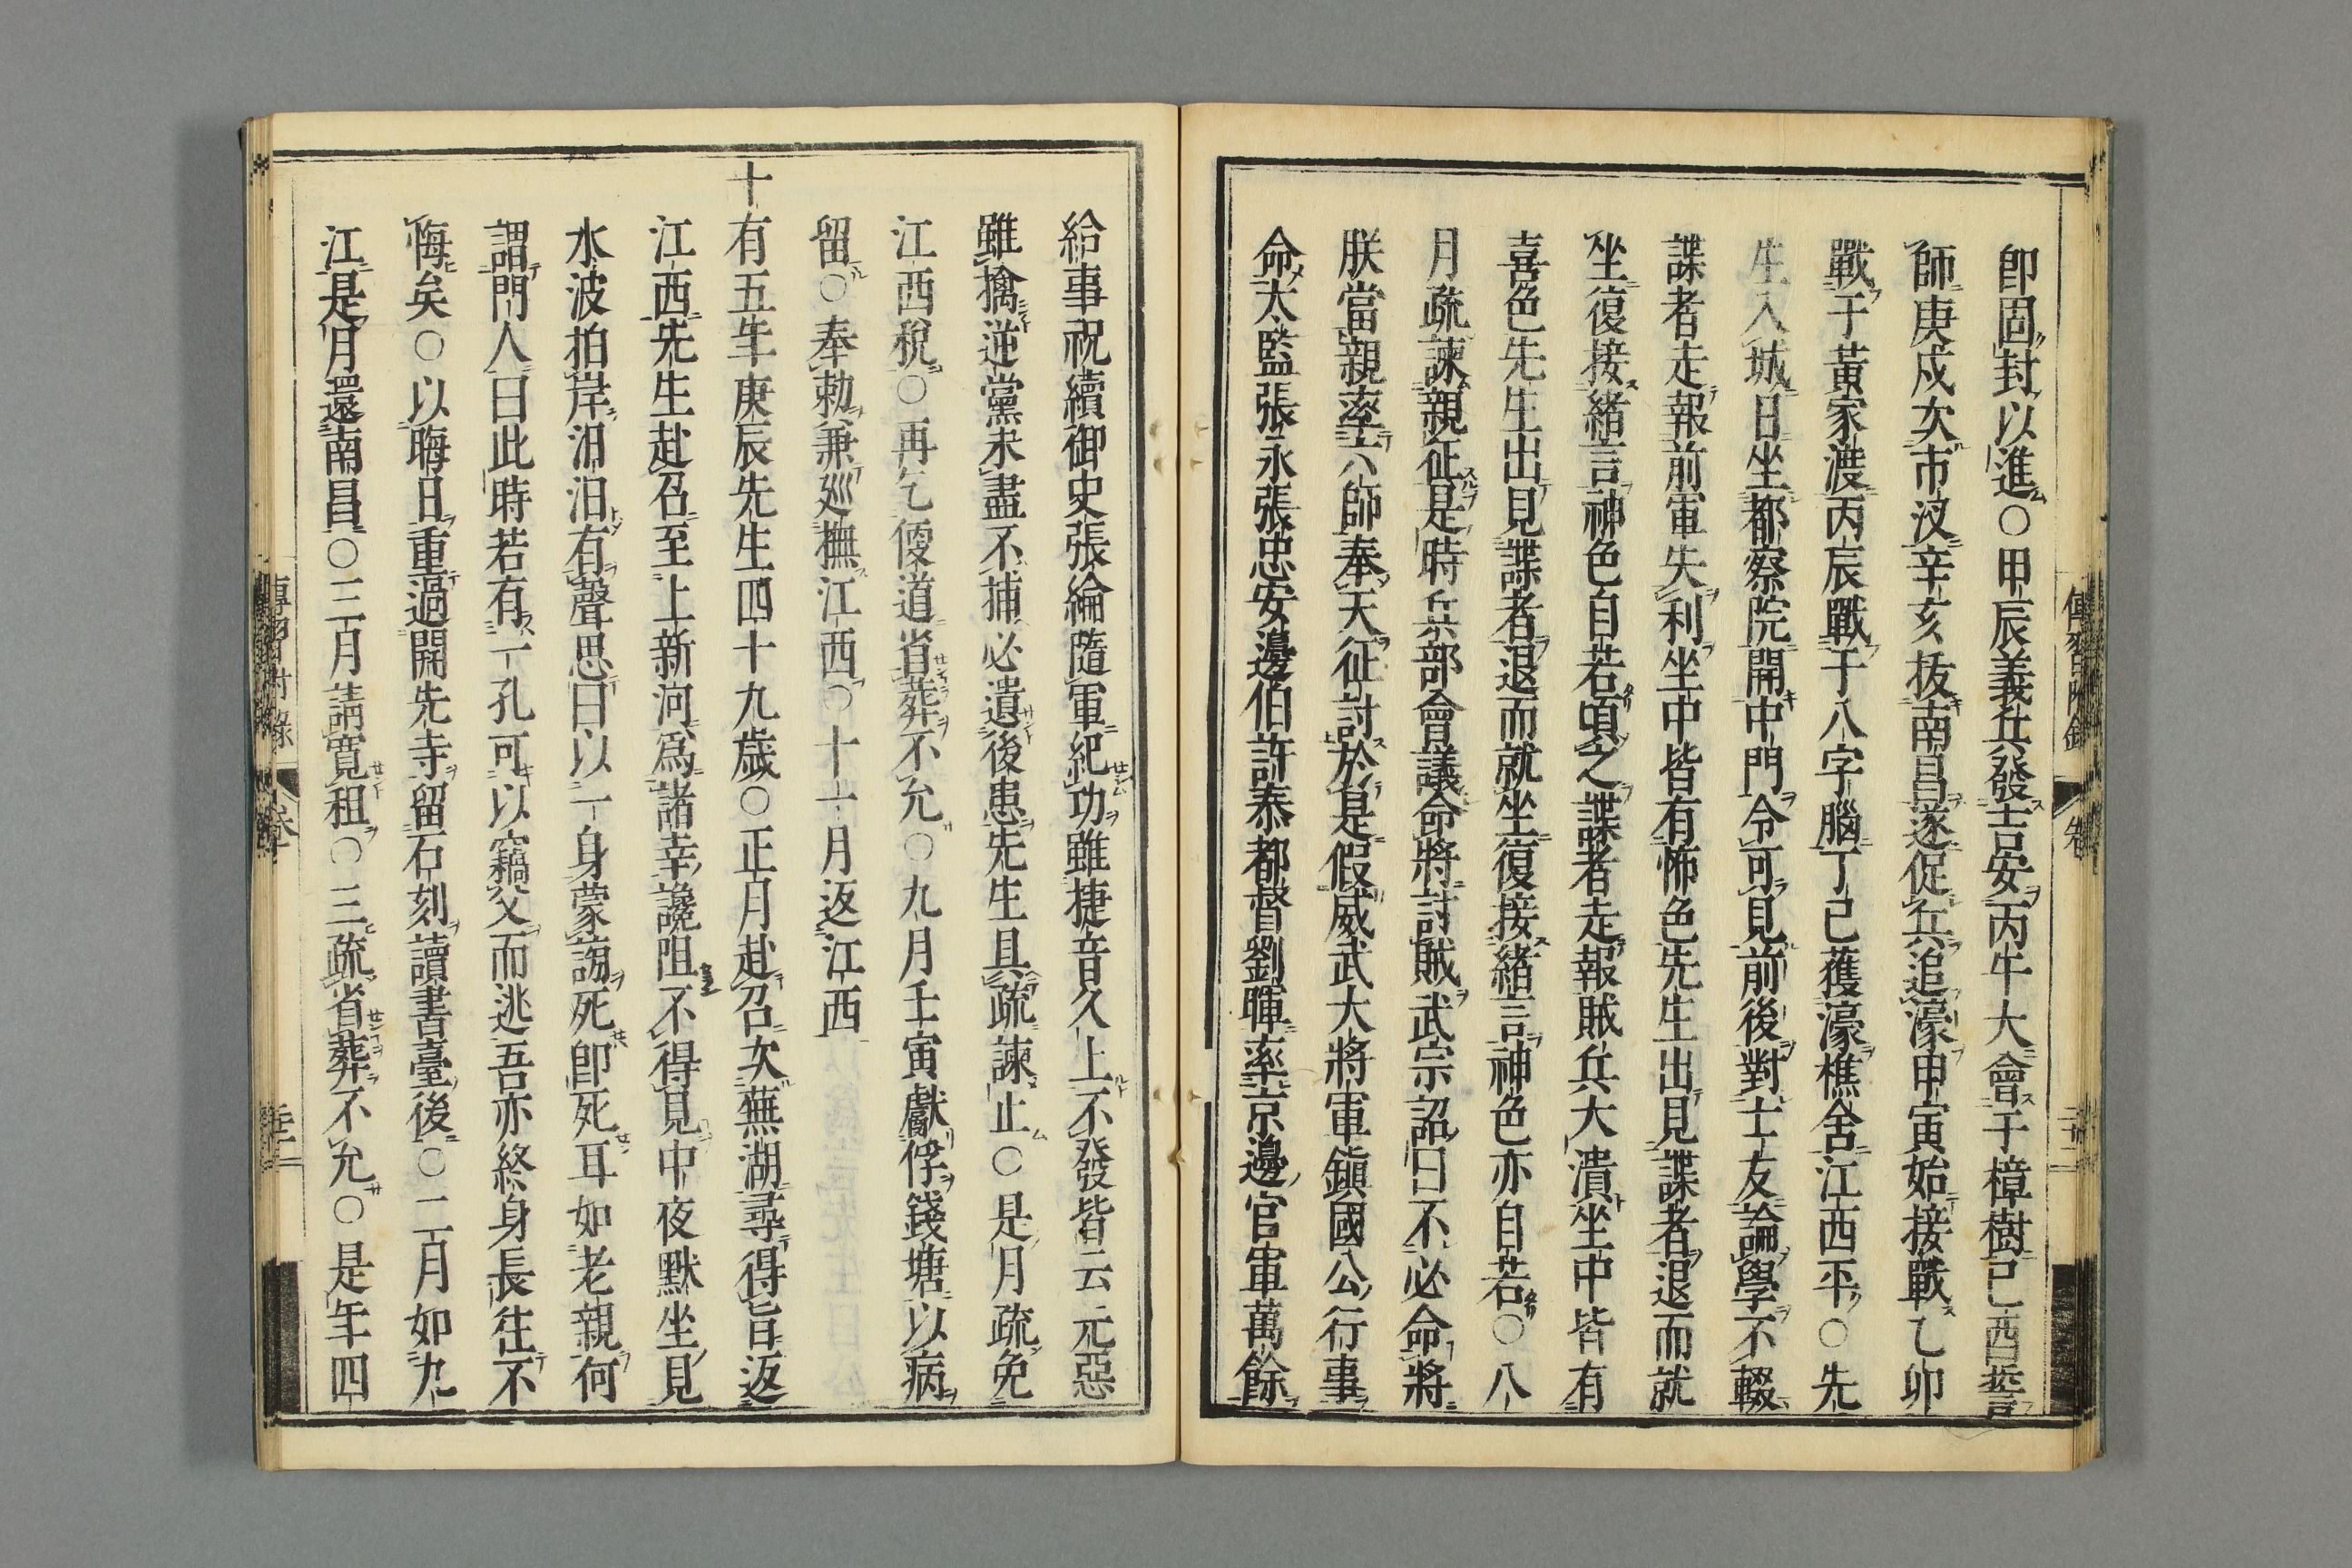 卽固封以進○甲辰義兵發吉安丙午大會于樟樹己酉誓
師庚戍次市汊辛亥拔南昌遂促兵追濠甲寅始接戰乙卯
戰于黃家渡丙辰戰于八字腦丁己獲濠樵舍江西平○先
生入城日坐都察院開中門令可見前後對士友論學不輟
諜者走報前軍失利坐中皆有怖色先生出見諜者退而就
坐復接緒言神色自若頃之諜者走報賊兵大潰坐中皆有
喜色先生出見諜者退而就坐復接緒言神色亦自若○八
月疏諫親征是時兵部會議命將討賊武宗詔曰不必命將
朕當親率六師奉天征討於是假威武大將軍鎭國公行事
命太監張永張忠安邊伯許泰都督劉暉率京邊官軍萬餘
給事祝續御史張綸隨軍紀功雖捷音久上不發皆云元惡
雖擒逆黨未盡不捕必遺後患先生具疏諫止○是月疏免
江西稅○再乞便道省葬不允○九月壬寅獻俘錢塘以病
留○奉勑兼巡撫江西○十一月返江西
十有五年庚辰先生四十九歲○正月赴召次蕪湖尋得旨返
江西先生赴召至上新河爲諸幸讒阻不得見中夜默坐見
水波拍岸汨汨有聲思曰以一身蒙謗死卽死耳如老親何
謂門人曰此時若有一孔可以竊父而逃吾亦終身長往不
悔矣○以晦日重過開先寺留石刻讀書臺後○二月如九
江是月還南昌○三月請寬租○三疏省葬不允○是年四